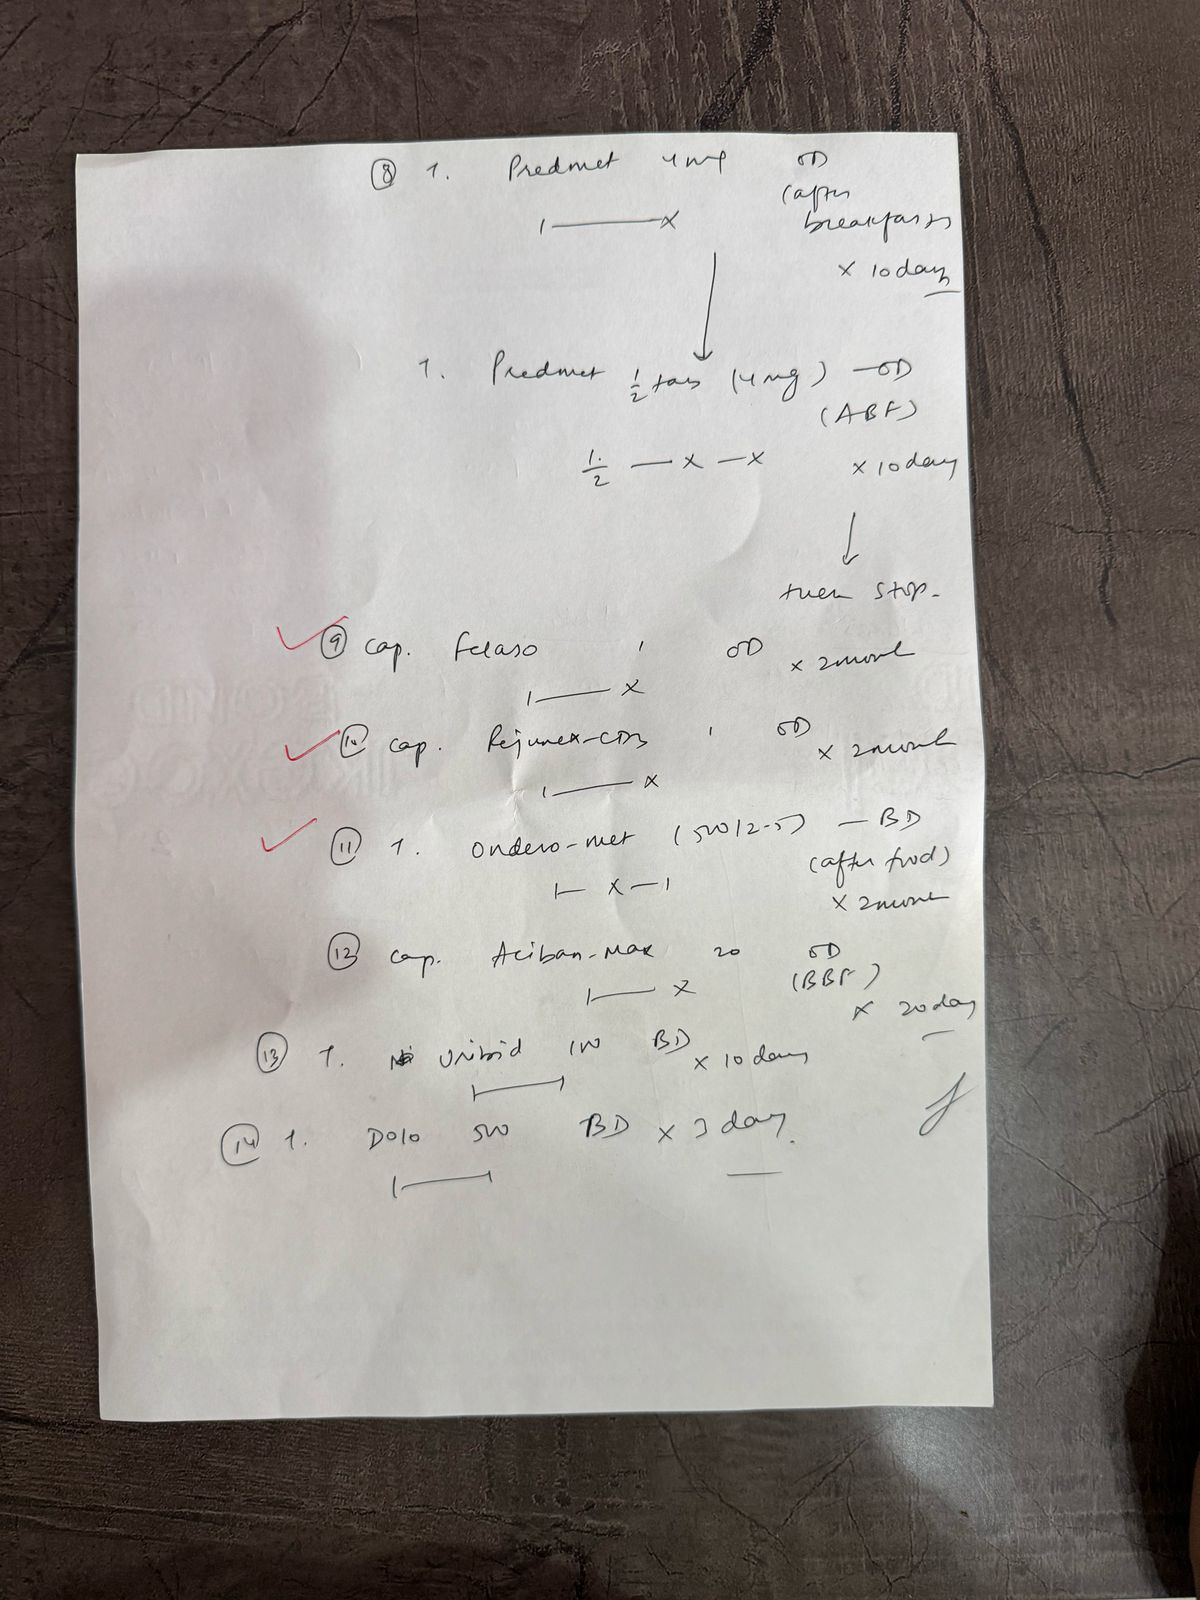 ⑧ T. Predmet 4mg OD
(after
breakfast)
1 ——— x
x 10 days
↓
T. Predmet 1/2 tab (4mg) — OD
(ABF)
1/2 — x — x x 10 days
↓
then stop.
⑨ cap. Felaso 1 OD x 2 month
1 ——— x
⑩ cap. Rejunex-CD3 1 OD x 2 month
1 ——— x
⑪ T. Ondero-met (500/2.5) — BD
(after food)
1 — x — 1
x 2 month
⑫ cap. Aciban-Max 20 OD
(BBF)
1 ——— x
x 20 days
⑬ T. Uribid 100 BD x 10 days
1 ——— 1
⑭ T. Dolo 500 BD x 3 day.
1 ——— 1